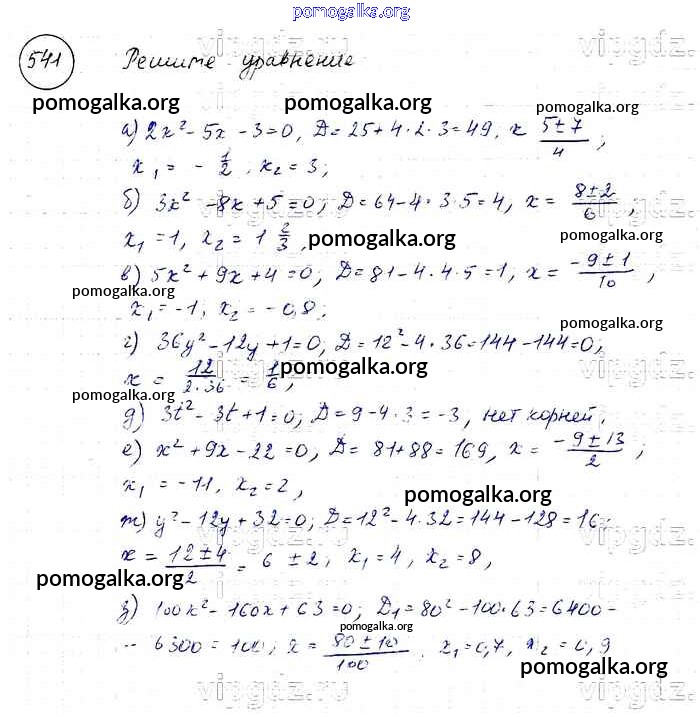 pomogalka.org
vipgdz.ru
541 Решите уравнение
pomogalka.org pomogalka.org pomogalka.org
а) 2x² - 5x - 3 = 0, Д = 25 + 4 · 2 · 3 = 49, x 5 ± 7 / 4 ;
x₁ = - 1/2, x₂ = 3;
б) 3x² - 8x + 5 = 0; Д = 64 - 4 · 3 · 5 = 4, x = 8 ± 2 / 6 ,
x₁ = 1, x₂ = 1 2/3, pomogalka.org pomogalka.org
в) 5x² + 9x + 4 = 0; Д = 81 - 4 · 4 · 5 = 1, x = -9 ± 1 / 10 ,
pomogalka.org
x₁ = -1, x₂ = -0,8;
pomogalka.org
г) 36y² - 12y + 1 = 0, Д = 12² - 4 · 36 = 144 - 144 = 0;
pomogalka.org
x = 12 / 2·36 = 1/6,
pomogalka.org
д) 3t² - 3t + 1 = 0; Д = 9 - 4 · 3 = -3, нет корней.
е) x² + 9x - 22 = 0, Д = 81 + 88 = 169, x = -9 ± 13 / 2 ;
x₁ = -11, x₂ = 2,
pomogalka.org
ж) y² - 12y + 32 = 0; Д = 12² - 4 · 32 = 144 - 128 = 16;
x = 12 ± 4 / 2 = 6 ± 2; x₁ = 4, x₂ = 8,
pomogalka.org pomogalka.org
з) 100x² - 160x + 63 = 0; Д₁ = 80² - 100 · 63 = 6400 -
pomogalka.org
- 6300 = 100; x = 80 ± 10 / 100 , x₁ = 0,7, x₂ = 0,9
pomogalka.org
vipgdz.ru